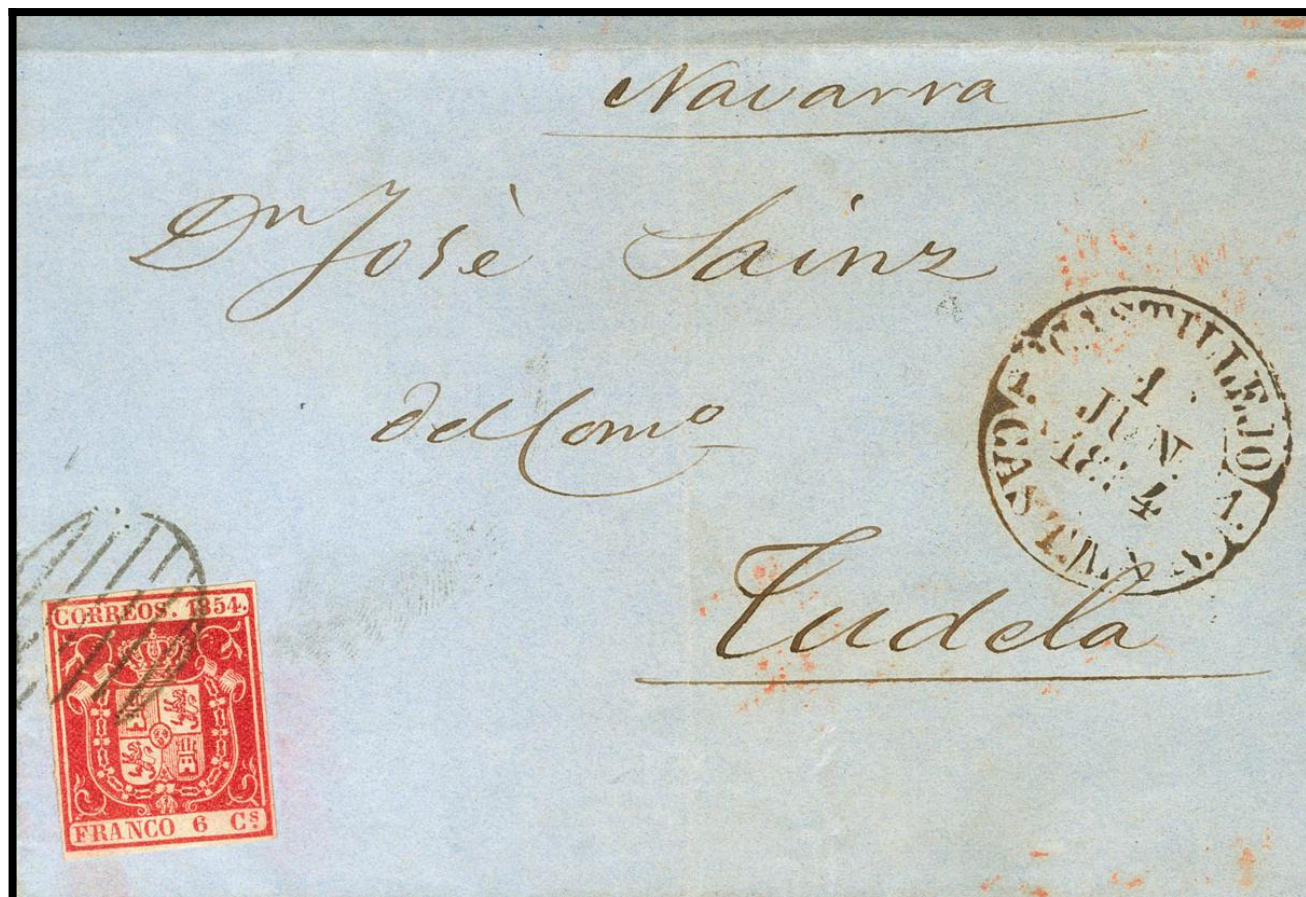 Navarra
Dn Josè Sainz
del Como
Tudela
CASTILLEJO
1
JUN.
1854
CAST. N.
CORREOS. 1854.
FRANCO 6 Cs